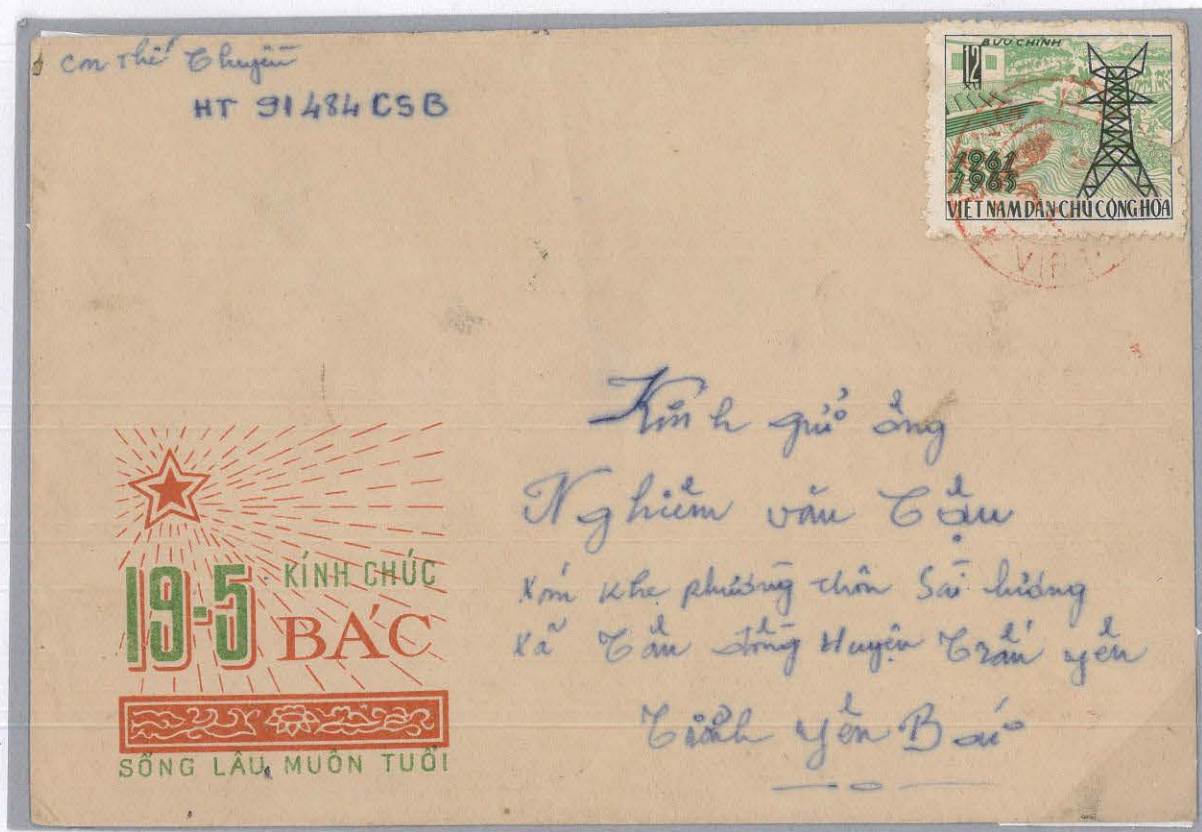 Con Thế Thuyên
HT 91484 CSB
BƯU CHÍNH
12
XU
1961
1965
VIỆT NAM DÂN CHỦ CỘNG HÒA
Kính gửi ông
Nghiêm văn Cậu
Xóm Khe phường thôn Sài lương
Xã Tân đồng Huyện Trấn yên
Tỉnh yên Bái
19-5 KÍNH CHÚC
BÁC
SỐNG LÂU MUÔN TUỔI